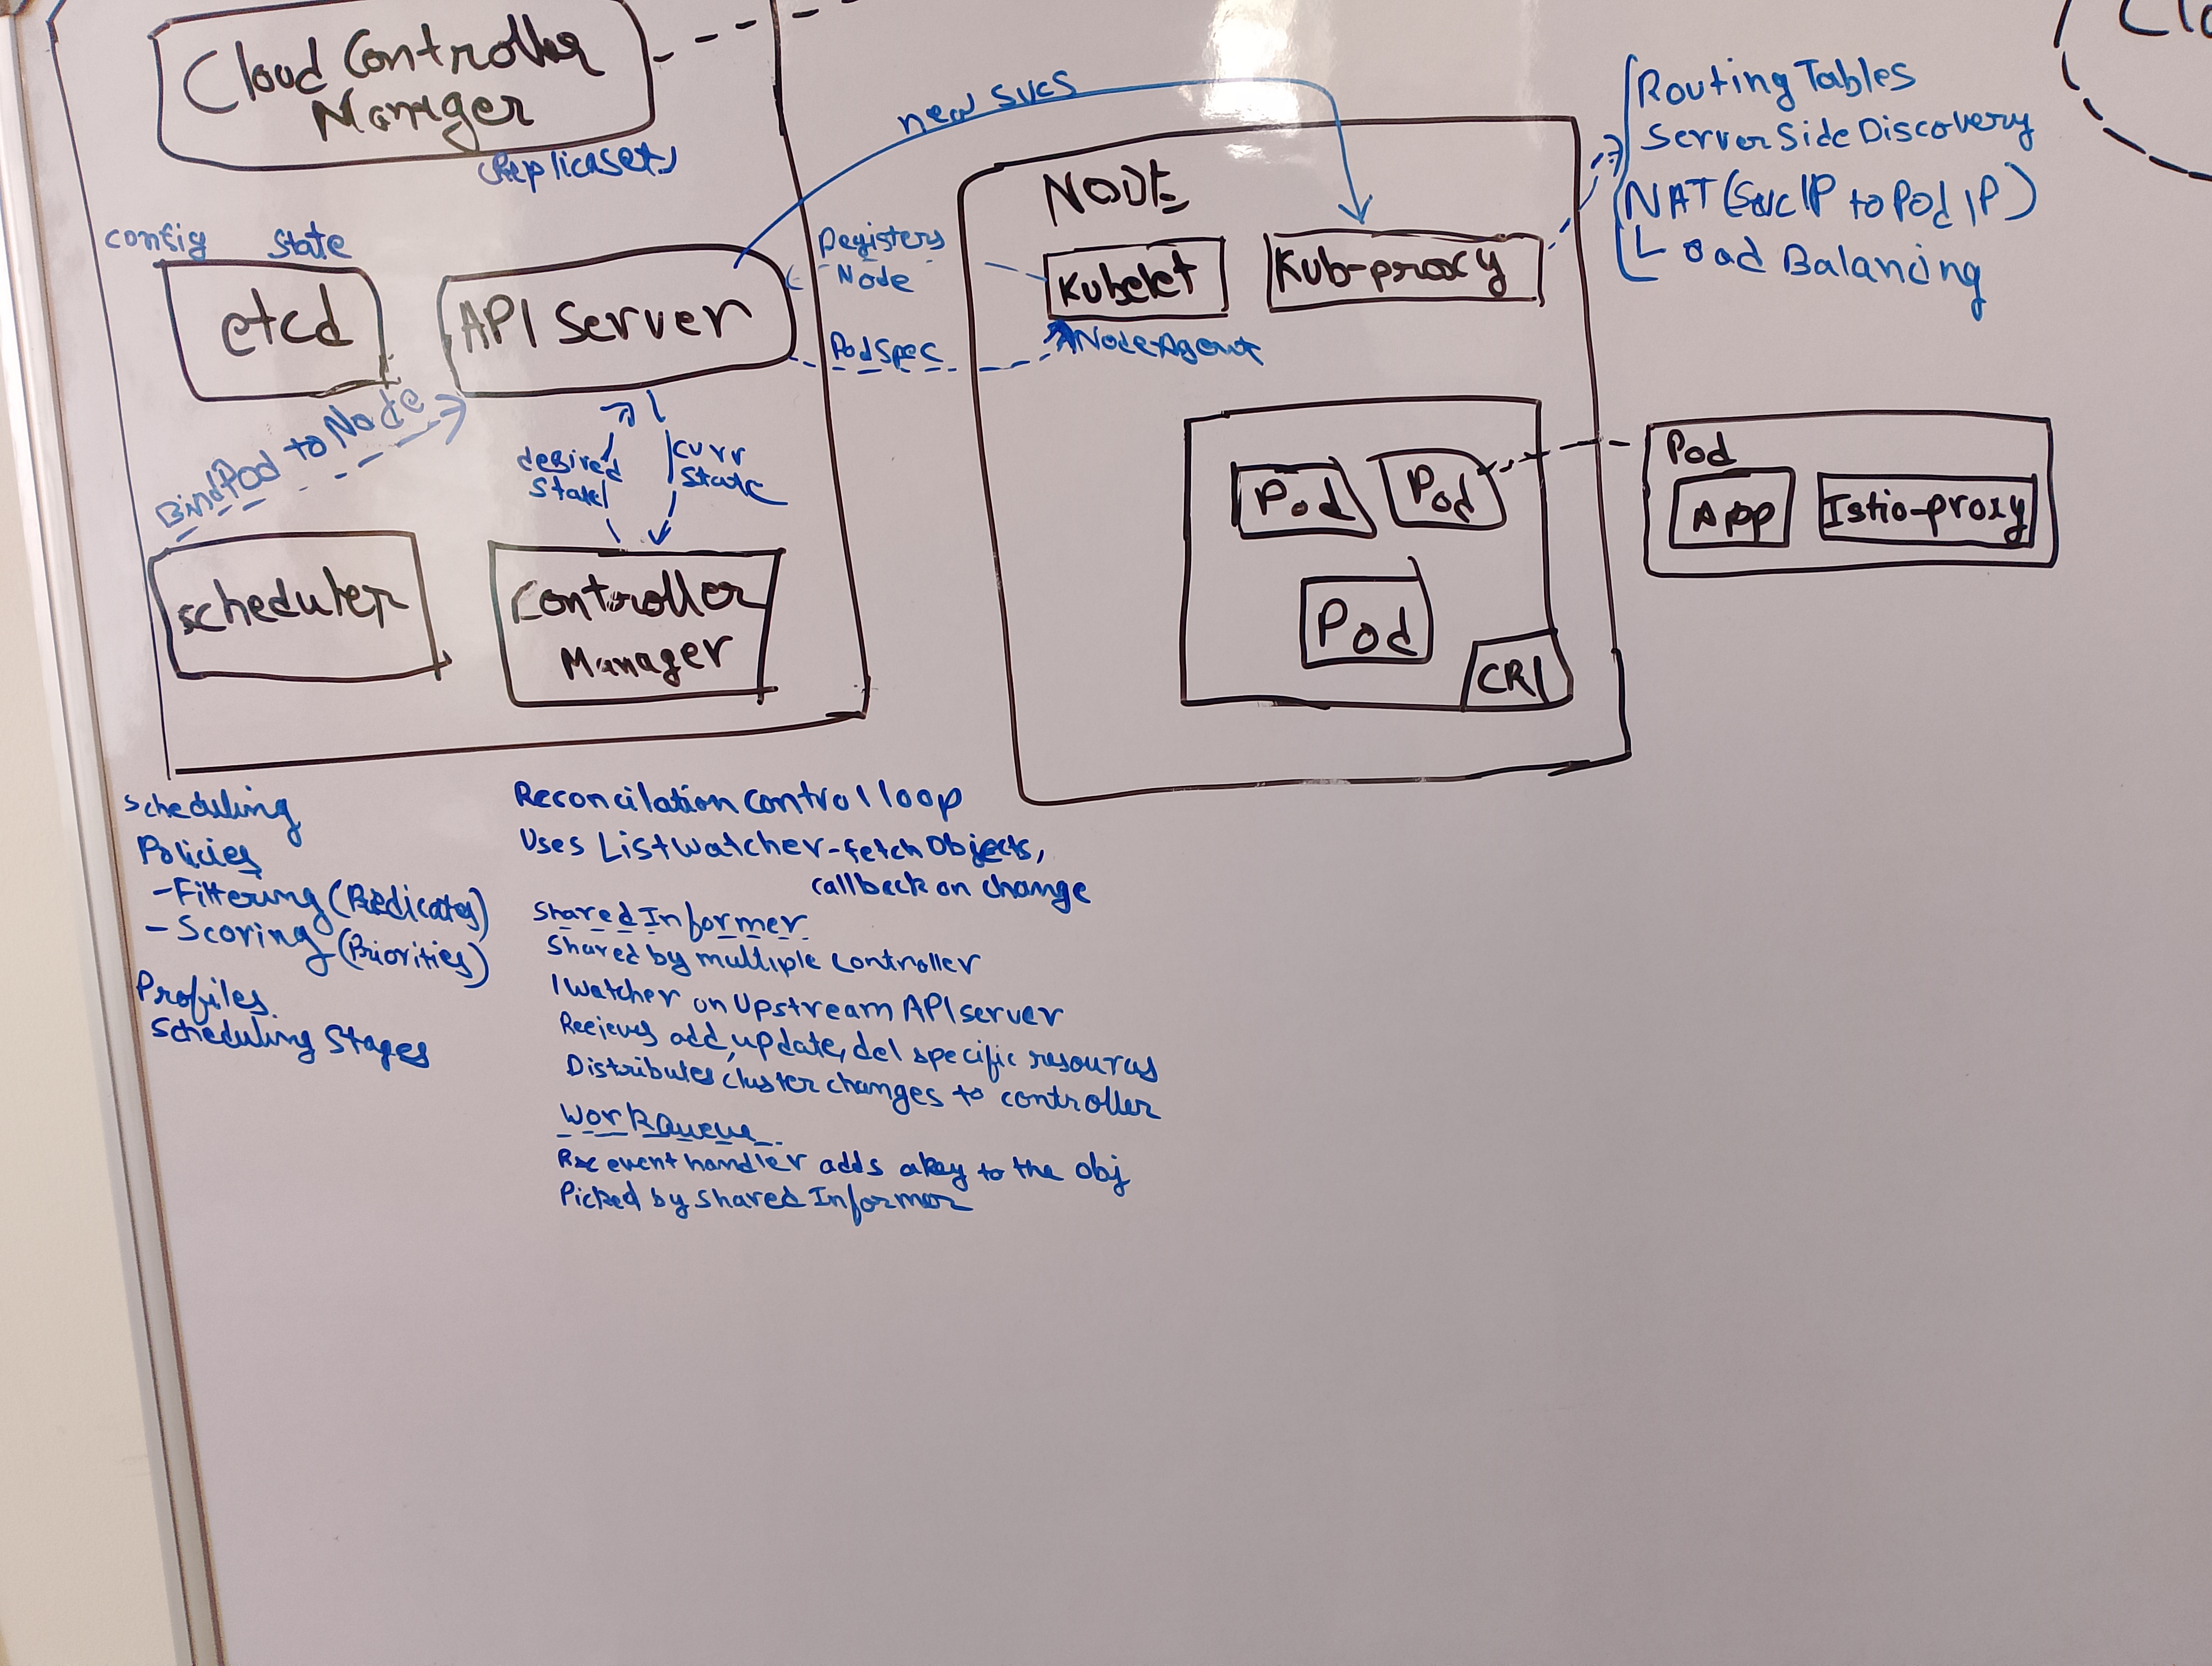 Cloud Controller
Manager
(Replicaset)
config state
etcd
API Server
Bind Pod to Node
desired
state
curr
state
scheduler
Controller
Manager
new svcs
Registers
Node
PodSpec
NODE
Kubelet
Node Agent
Kub-proxy
Routing Tables
Server Side Discovery
NAT (Svc IP to Pod IP)
Load Balancing
Pod
Pod
Pod
CRI
Pod
App
Istio-proxy
Scheduling
Policies
- Filtering (Predicates)
- Scoring (Priorities)
Profiles
Scheduling Stages
Reconcilation control loop
Uses ListWatcher - fetch Objects,
callback on change
Shared Informer
Shared by multiple controller
1 Watcher on Upstream API server
Recieves add, update, del specific resources
Distributes cluster changes to controller
WorkQueue
event handler adds a key to the obj
Picked by Shared Informor